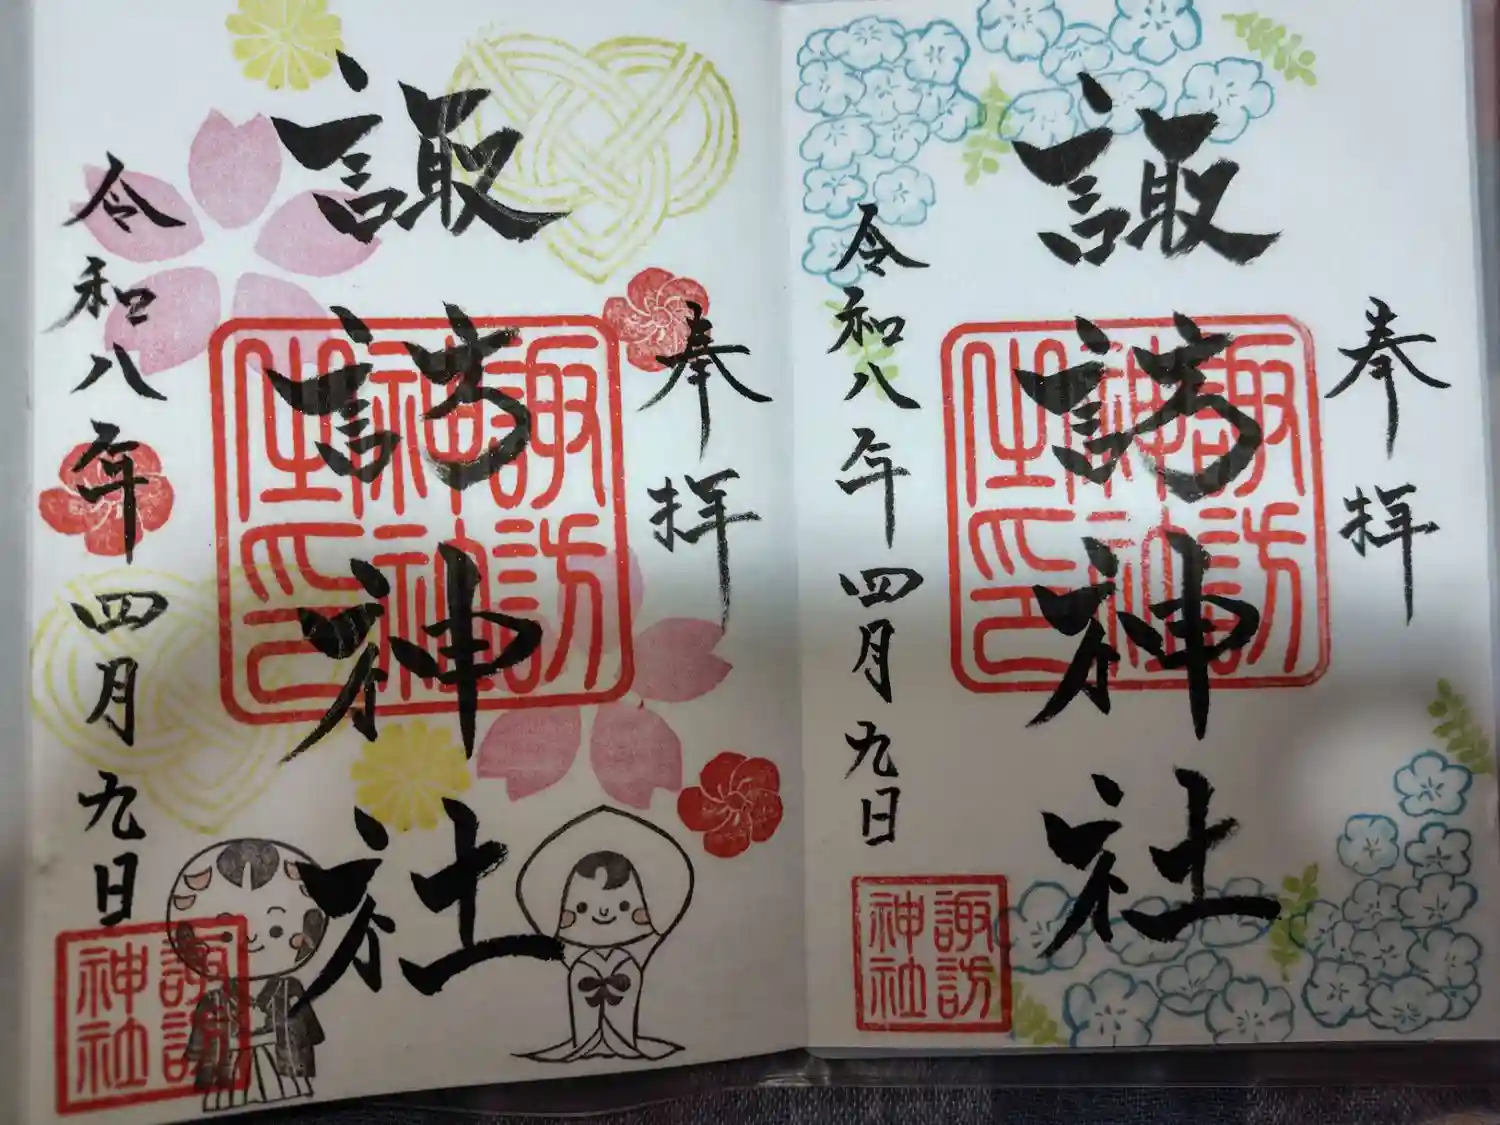 奉拝
諏訪神社
諏訪
神社
之印
令和八年四月九日
諏訪
神社
奉拝
諏訪神社
諏訪
神社
之印
令和八年四月九日
諏訪
神社